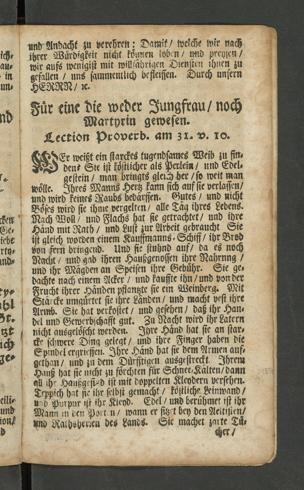 und Andacht zu verehren: Damit/ welche wir nach
ihrer Würdigkeit nicht können loben/ und preysen/
wir aufs wenigist mit willfährigen Diensten ihnen zu
gefallen/ uns sammentlich befleissen. Durch unsern
HERRN/ ꝛc.
Für eine die weder Jungfrau/ noch
Martyrin gewesen.
Lection Proverb. am 31. v. 10.
WEr weißt ein starckes tugendsames Weib zu fin-
den? Sie ist köstlicher als Perlein/ und Edel-
gestein/ man bringts gleich her/ so weit man
wölle. Ihres Manns Hertz kann sich auf sie verlassen/
und wird keines Raubs bedärffen. Gutes/ und nicht
Böses wird sie ihne vergelten/ alle Täg ihres Lebens.
Nach Woll/ und Flachs hat sie getrachtet/ und ihre
Händ mit Rath/ und Lust zur Arbeit gebraucht. Sie
ist gleich worden einem Kauffmanns-Schiff/ ihr Brod
von fern bringend. Und sie stund auf/ da es noch
Nacht/ und gab ihren Haußgenossen ihre Nahrung/
und ihr Mägden an Speisen ihre Gebühr. Sie ge-
dachte nach einem Acker/ und kauffte ihn/ und von der
Frucht ihrer Händen pflantzte sie ein Weinberg. Mit
Stärcke umgürtet sie ihre Länden/ und macht vest ihre
Armb. Sie hat verkostet/ und gesehen/ daß ihr Han-
del und Gewerbschafft gut. Zu Nacht wird ihr Latern
nicht ausgelöscht werden. Ihr Händ hat sie an star-
cke schwere Ding gelegt/ und ihre Finger haben die
Spindel ergriessen. Ihre Händ hat sie dem Armen auf-
gethan/ und zu dem Dürfftigen ausgestreckt. Ihrem
Hauß hat sie nicht zu förchten für Schnee/Kälten/dann
all ihr Haußgesind ist mit doppelten Kleydern versehen.
Teppich hat sie ihr selbst gemacht/ köstliche Leinwand/
und Purpur ist ihr Kleyd. Edel/ und berühmet ist ihr
Mann in den Porten/ wann er sitzt bey den Aeltisten/
und Rathsherren des Lands. Sie machet zarte Tü-
cher/